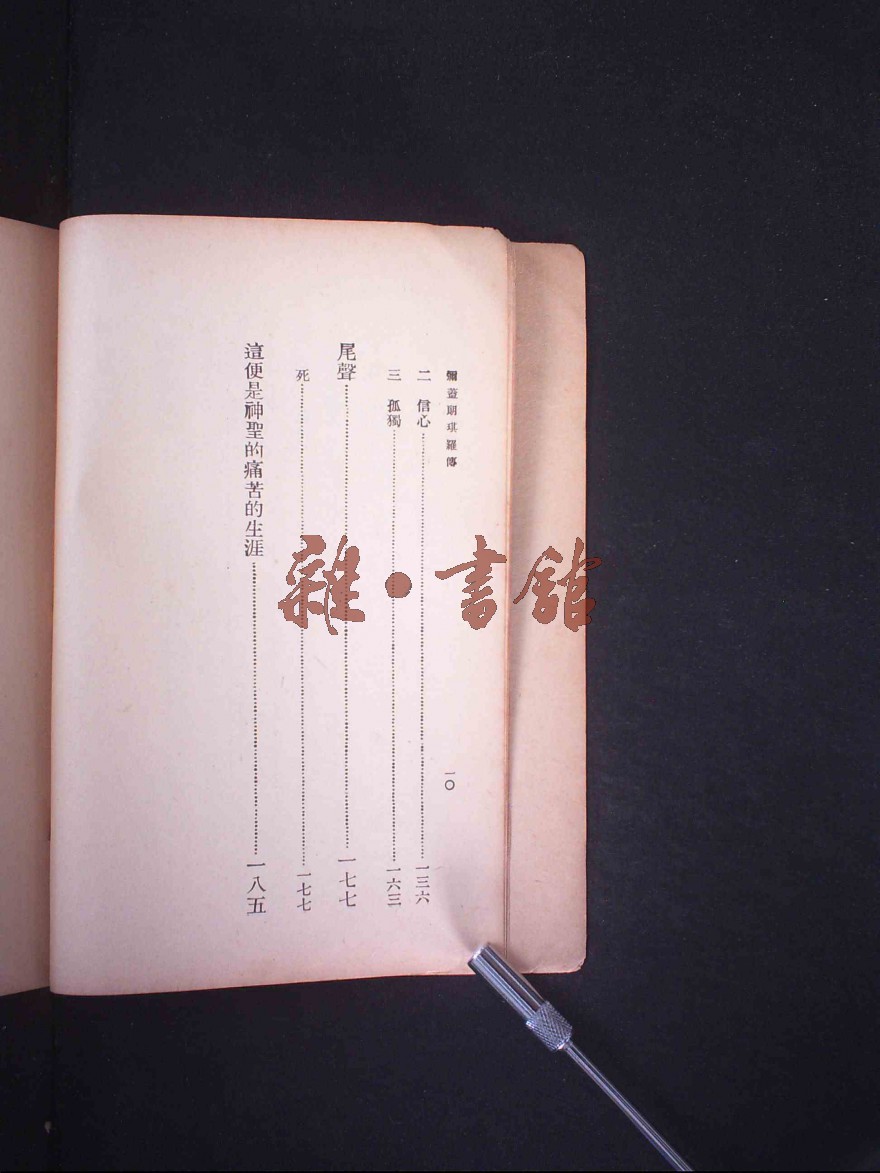 彌蓋朗琪羅傳
一〇
二 信心……一三六
三 孤獨……一六三
尾聲……一七七
死……一七七
這便是神聖的痛苦的生涯……一八五
雜·書館